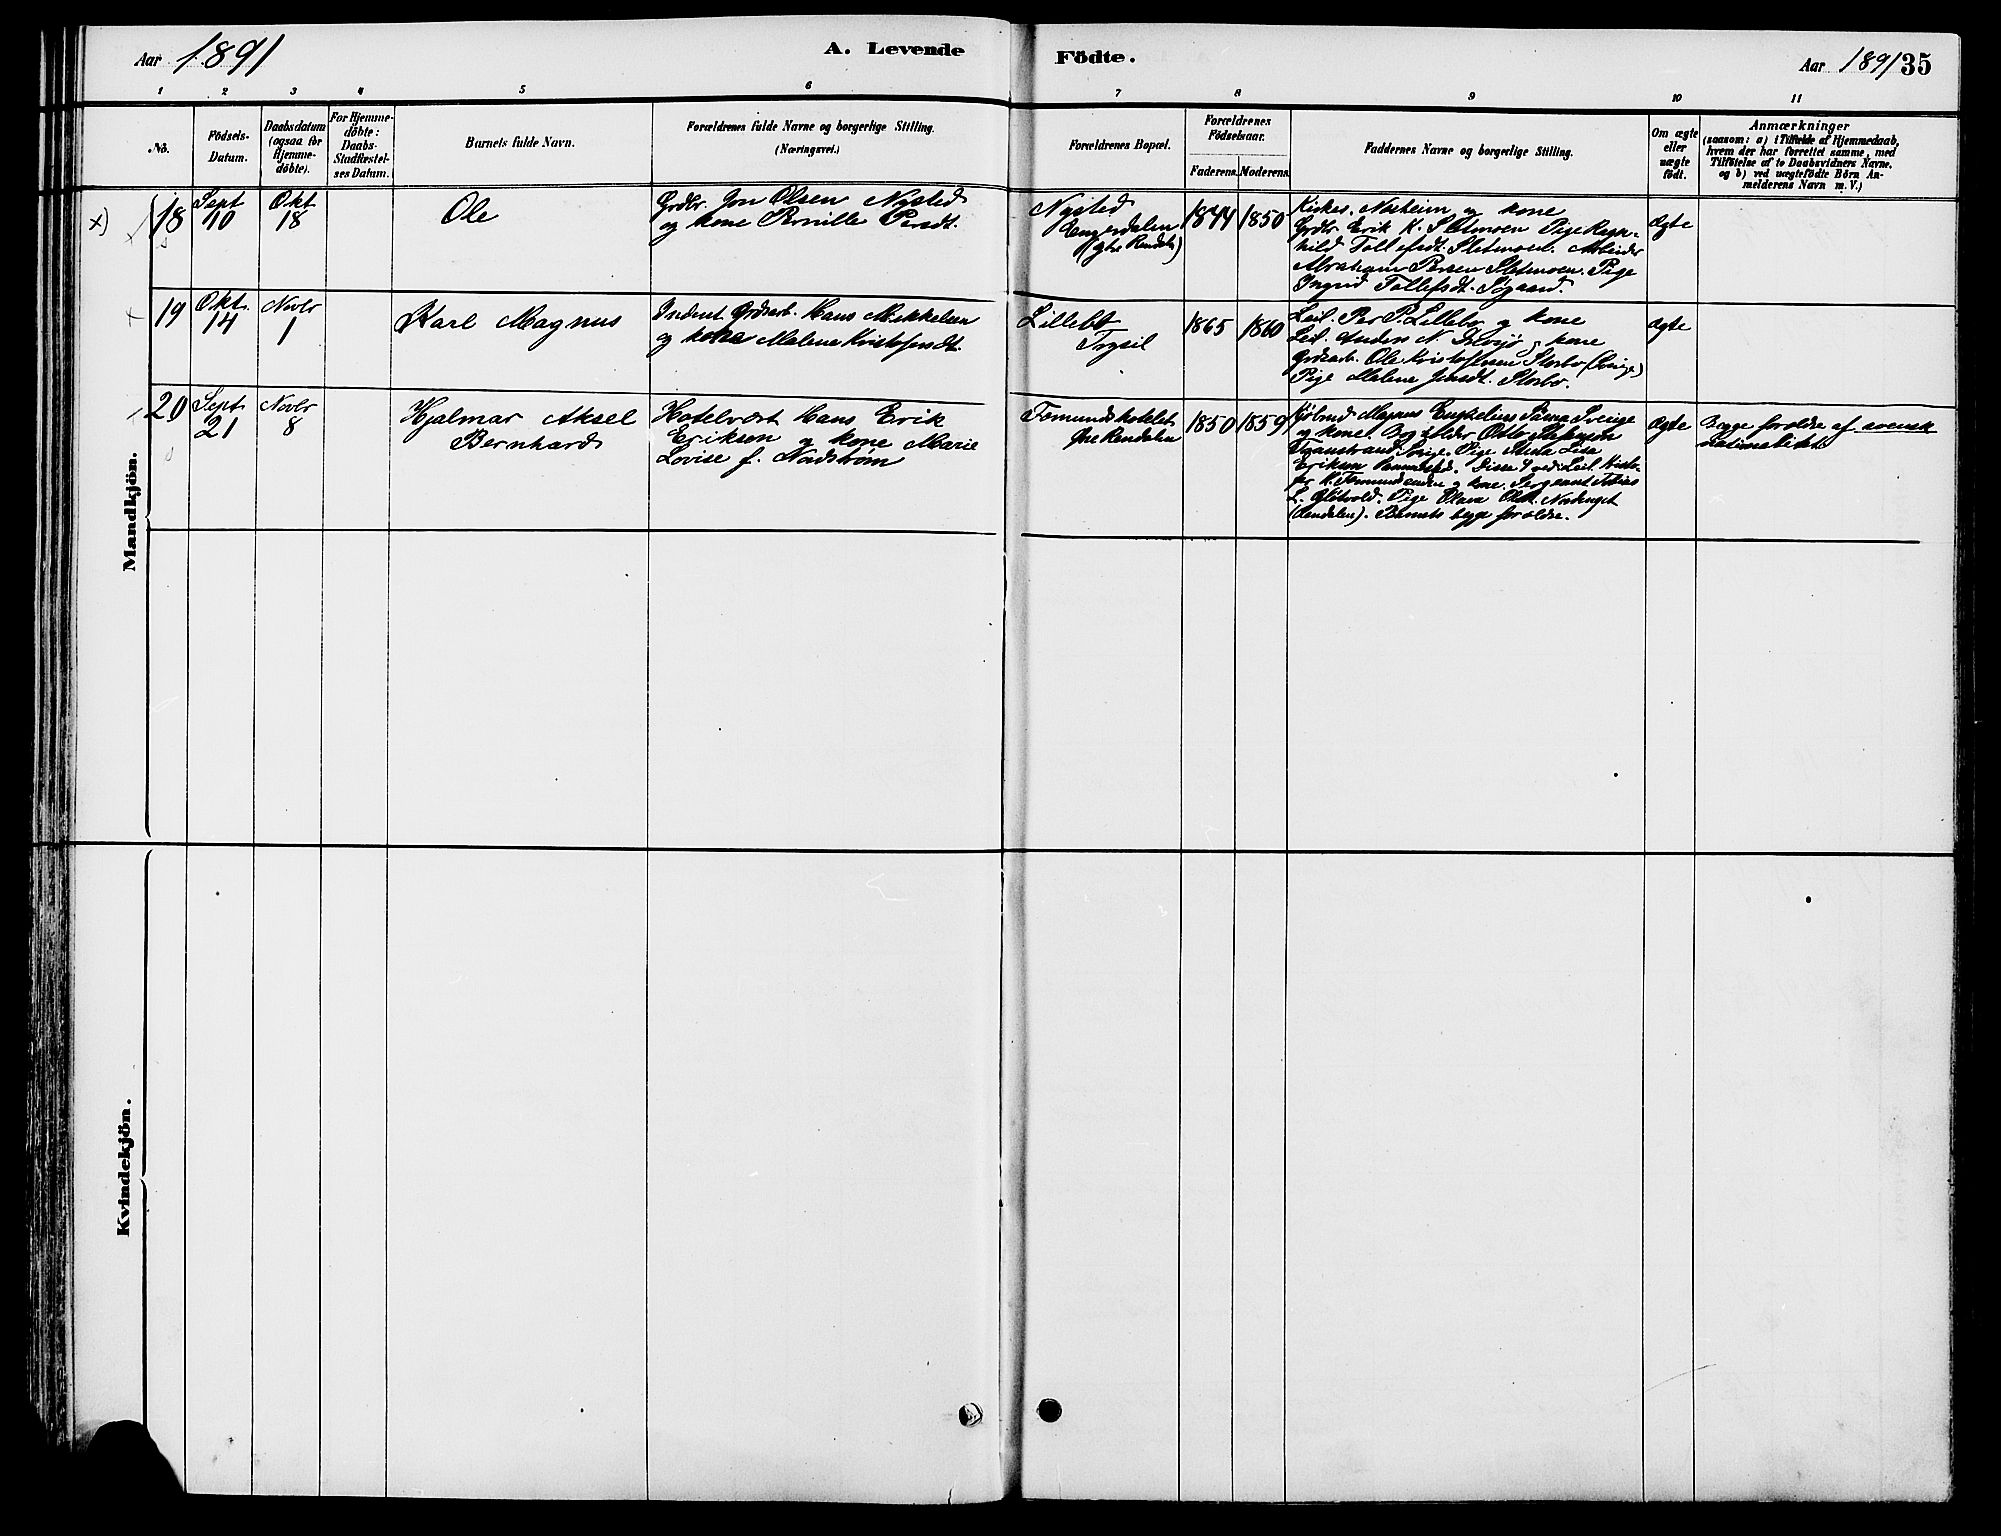 Aar 1891
A. Levende Födte.
Aar 1891 35
1 2 3 4 5 6 7 8 9 10 11
No.
Födsels-
Datum.
Daabsdatum
(ogsaa for
Hjemme-
döbte).
For Hjemme-
döbte:
Daabs-
Stadfæstel-
ses Datum.
Barnets fulde Navn.
Forældrenes fulde Navne og borgerlige Stilling.
(Næringsvei.)
Forældrenes Bopæl.
Forældrenes
Födselsaar.
Faderens. Moderens.
Faddernes Navne og borgerlige Stilling.
Om ægte
eller
uægte
født.
Anmærkninger
(saasom: a) i Tilfælde af Hjemmedaab,
hvem der har forrettet samme, med
Tilföielse af to Daabsvidners Navne.
og b) ved uægtefödte Börn An-
melderens Navn m. V.)
Mandkjön.
x)
18
Sept
10
Okt
18
Ole
Grdbr. Jon Olsen Nysted
og kone Pernille Persdt.
Nysted
Engerdalen
1844 1850
Kirkes. Norheim og kone
Grdbr. Erik K. Sletmoen Pige Ragn-
hild Tollefsdt. Sletmoen. Arbeider
Abraham Persen Sletmoen. Pige
Ingrid Tollefsdt. Søgaard.
Ægte
19
Okt.
14
Novbr
1
Karl Magnus
Inderst Grdsarb. Hans Mikkelsen
og kone Malene Kristofersdt.
Lillebo
Trysil
1865 1860
Leil. Per P. Lillebo og kone
Leil. Anders N. og kone
Grdsarb. Ole Kristofersen Storbo (Sverige)
Pige Malene Jensdt. Storbo.
Ægte
20
Sept
21
Novbr
8
Hjalmar Aksel
Bernhard
Hotelvært Hans Erik
Erikson og kone Marie
Lovise f. Nordstrøm
Fæmundshotellet
Øvre Rendalen
1850 1859
Magnus Särna Sverige
og kone. Otto
Transtrand Sverige. Pige Lisa
Erikson. Disse 4 ved Leil. Kristo-
fer K. Fæmundsenden og kone. Sergeant Tobias
L. Glötvold. Pige Olava
(Rendalen). Barnets begge forældre.
Ægte
Begge forældre af svensk
nationalitet
Kvindekjön.